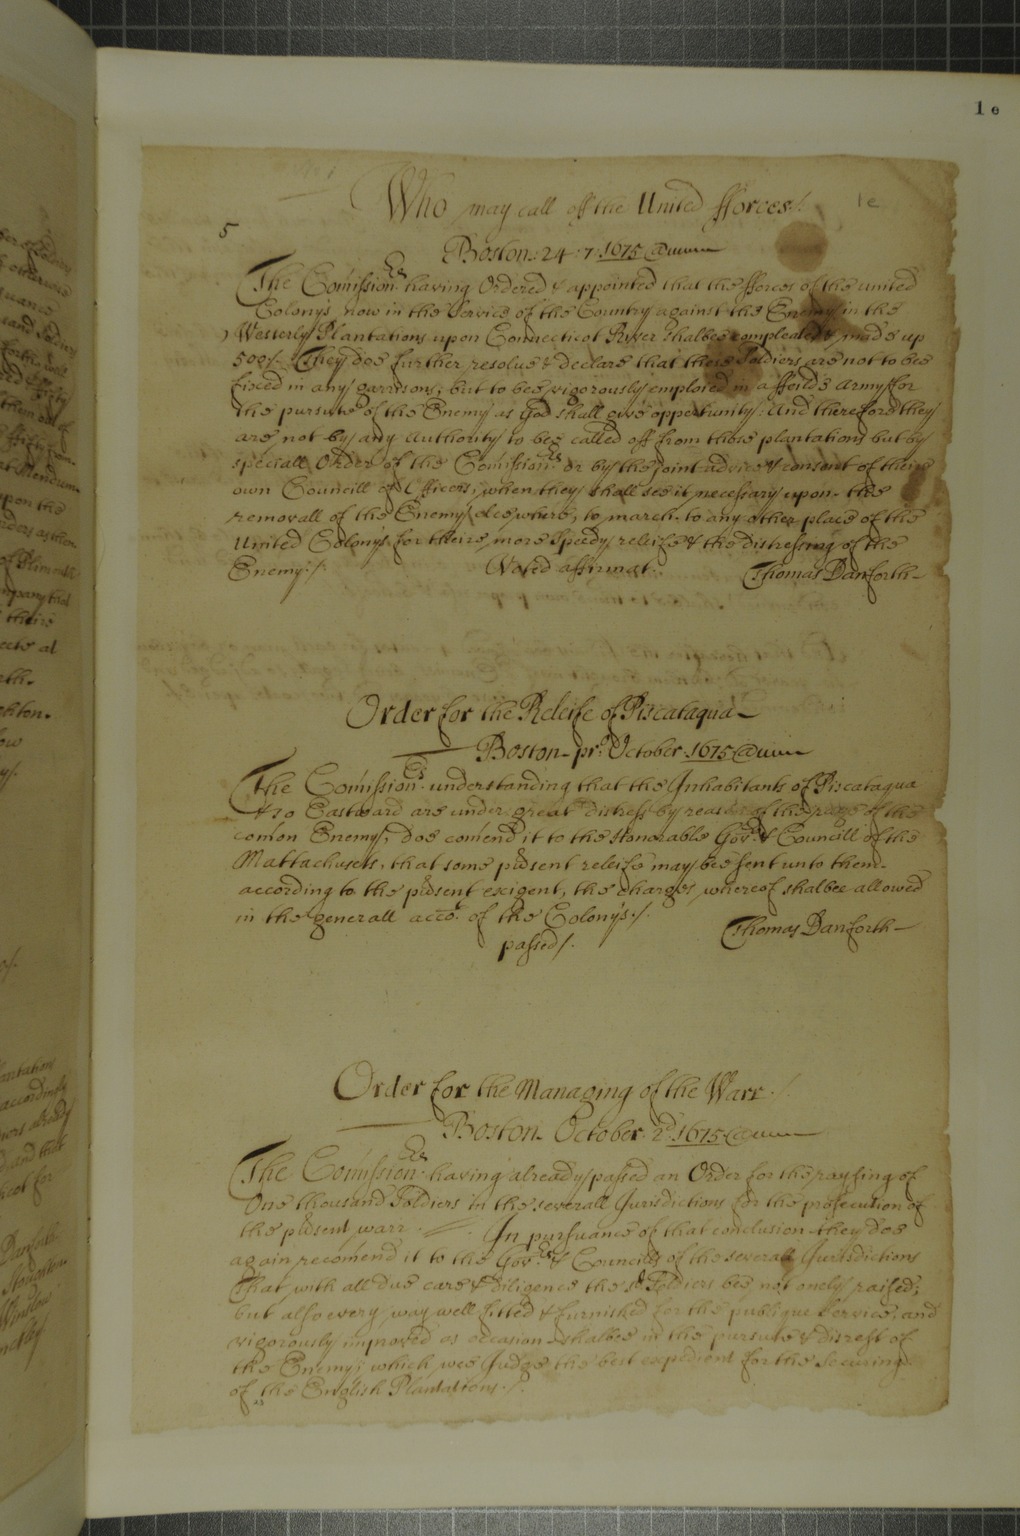 1e
Who may call off the United fforces/.
1e
5
Boston. 24: 7: 1675
The Comission:rs having Ordered & appointed that the fforces of the united
Colony's now in the Service of the Country against the Enemy in the
Westerly Plantations upon Connecticot River shalbee compleated & made up
500/. They doe further resolve & declare that these Soldiers are not to bee
fixed in any garrisons; but to bee vigorously employed in a ffeild Army for
the pursute of the Enemy as God shall give oppertunity: And therefore they
are not by any Authority to bee called off from those plantations but by
speciall Order of the Comission:rs or by the joint advice & consent of their
own Councill of Officers, when they shall see it necessary upon the
removall of the Enemy elcewhere, to march to any other place of the
United Colony's for theire more speedy releife & the distressing of the
Enemy:/. Voted affirmat:. Thomas Danforth
Order for the Releife of Piscataqua
Boston pr.º October 1675
The Comission:rs understanding that the Inhabitants of Piscataqua
& so Eastward are under great distress by reason of the rage of the
comon Enemy, doe comend it to the Honorable Gov:r & Councill of the
Mattachusets, that some prsent releife may bee sent unto them
according to the prsent exigent, the charges whereof shalbee allowed
in the generall acco.t of the Colony's:/.
Thomas Danforth
passed/.
Order for the Managing of the Warr./
Boston October 2d. 1675
The Comission:rs having already passed an Order for the raysing of
One thousand Soldiers in the severall Jurisdictions for the prosecution of
the prsent warr. In pursuance of that conclusion they doe
again recomend it to the Gov:rs & Councills of the severall Jurisdictions
That with all due care & diligence the sd Soldiers bee not onely raised;
but also every way well fitted & furnished for the publique Service, and
vigorously improved as occasion shalbee in the pursute & distress of
the Enemy; which wee Judge the best expedient for the Securing
of the English Plantations./.